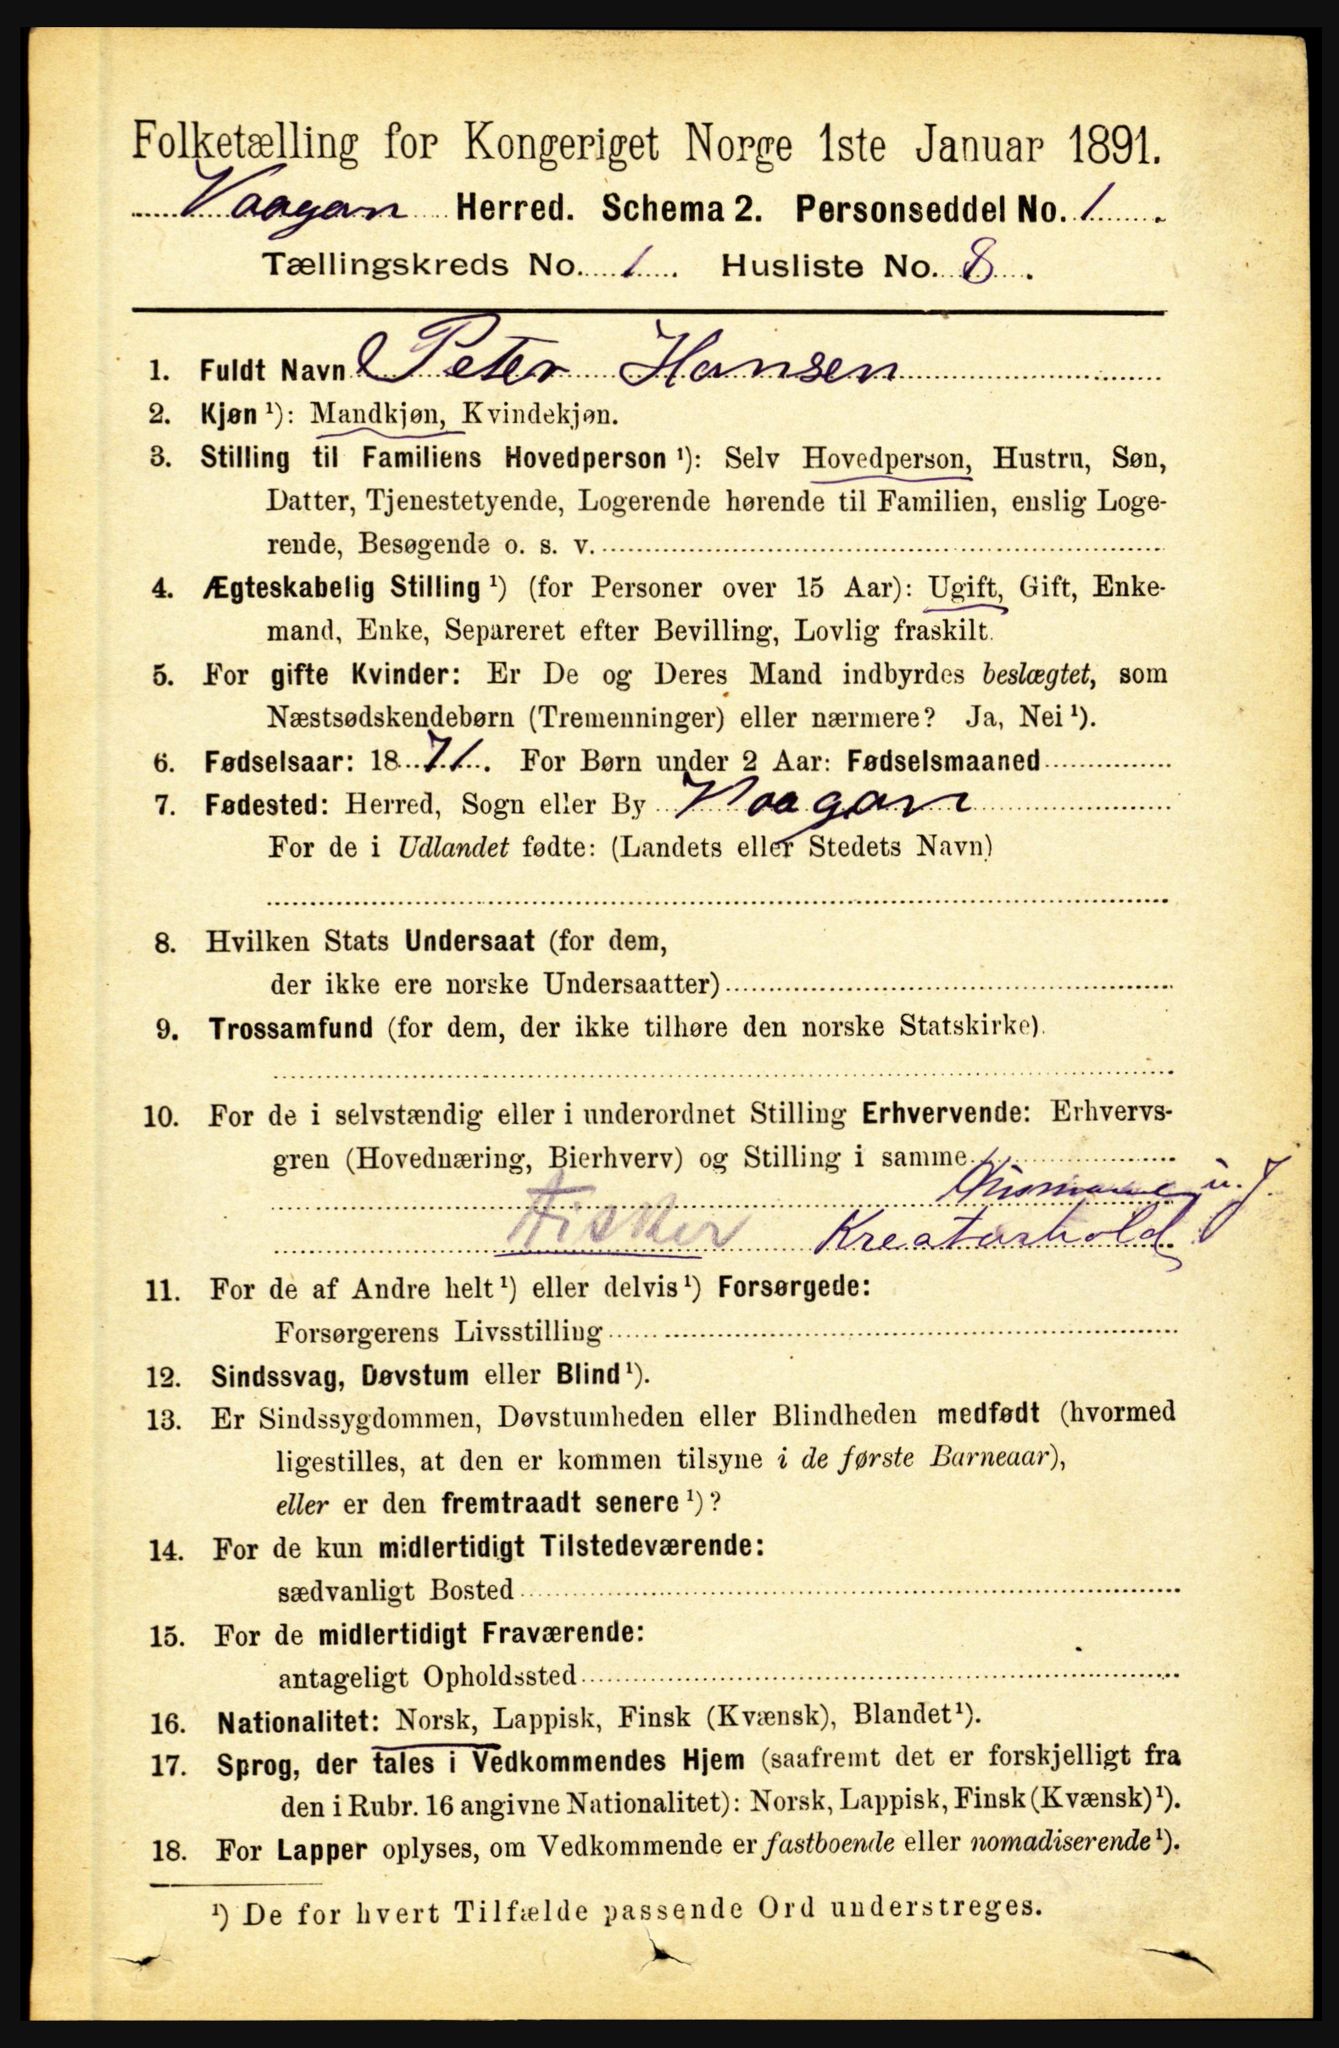 Folketælling for Kongeriget Norge 1ste Januar 1891.
Vaagan Herred. Schema 2. Personseddel No. 1.
Tællingskreds No. 1. Husliste No. 8.
1. Fuldt Navn Peter Hansen
2. Kjøn ¹): Mandkjøn, Kvindekjøn.
3. Stilling til Familiens Hovedperson ¹): Selv Hovedperson, Hustru, Søn,
Datter, Tjenestetyende, Logerende hørende til Familien, enslig Loge-
rende, Besøgende o. s. v.
4. Ægteskabelig Stilling ¹) (for Personer over 15 Aar): Ugift, Gift, Enke-
mand, Enke, Separeret efter Bevilling, Lovlig fraskilt.
5. For gifte Kvinder: Er De og Deres Mand indbyrdes beslægtet, som
Næstsødskendebørn (Tremenninger) eller nærmere? Ja, Nei ¹).
6. Fødselsaar: 1871. For Børn under 2 Aar: Fødselsmaaned
7. Fødested: Herred, Sogn eller By Vaagan
For de i Udlandet fødte: (Landets eller Stedets Navn)
8. Hvilken Stats Undersaat (for dem,
der ikke ere norske Undersaatter)
9. Trossamfund (for dem, der ikke tilhøre den norske Statskirke).
10. For de i selvstændig eller i underordnet Stilling Erhvervende: Erhvervs-
gren (Hovednæring, Bierhverv) og Stilling i samme
Husmand u. J.
Fisker Kreaturhold
11. For de af Andre helt ¹) eller delvis ¹) Forsørgede:
Forsørgerens Livsstilling
12. Sindssvag, Døvstum eller Blind ¹).
13. Er Sindssygdommen, Døvstumheden eller Blindheden medfødt (hvormed
ligestilles, at den er kommen tilsyne i de første Barneaar),
eller er den fremtraadt senere ¹)?
14. For de kun midlertidigt Tilstedeværende:
sædvanligt Bosted
15. For de midlertidigt Fraværende:
antageligt Opholdssted
16. Nationalitet: Norsk, Lappisk, Finsk (Kvænsk), Blandet ¹).
17. Sprog, der tales i Vedkommendes Hjem (saafremt det er forskjelligt fra
den i Rubr. 16 angivne Nationalitet): Norsk, Lappisk, Finsk (Kvænsk) ¹).
18. For Lapper oplyses, om Vedkommende er fastboende eller nomadiserende ¹).
¹) De for hvert Tilfælde passende Ord understreges.